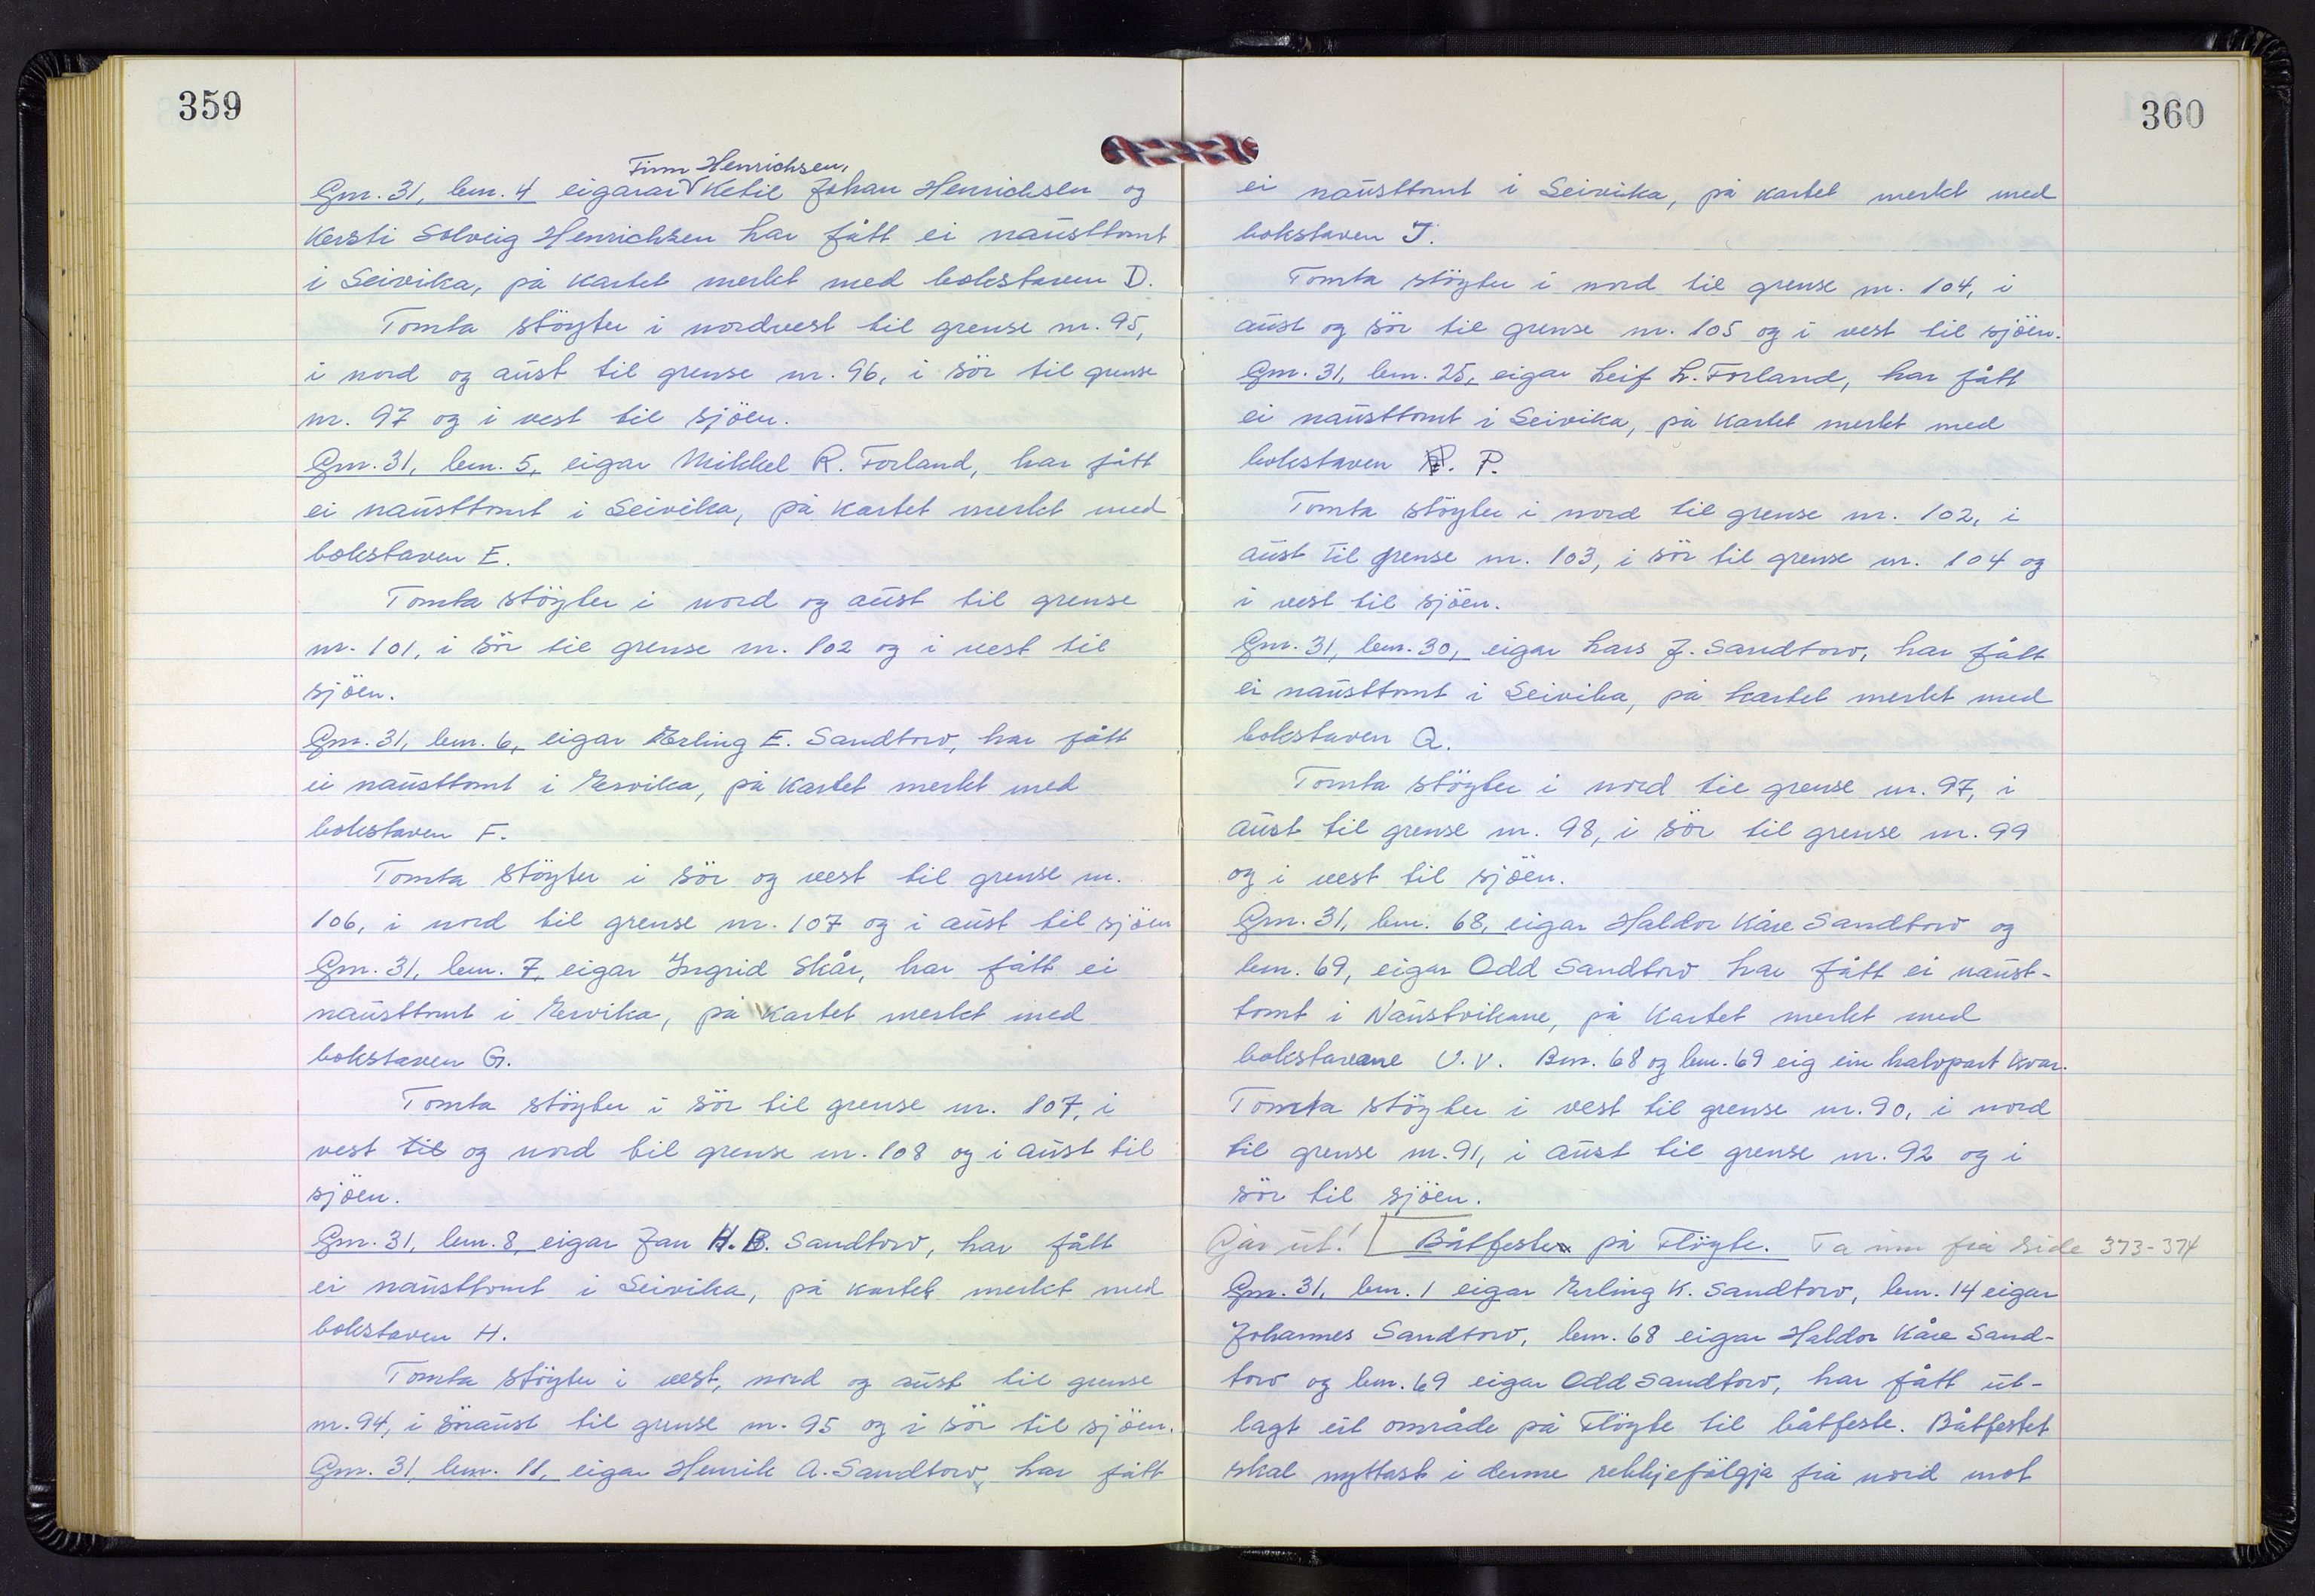 359
Finn Henrichsen,
Gnr. 31, bnr. 4 eigarar Ketil Johan Henrichsen og
Kersti Solveig Henrichsen har fått ei nausttomt
i Seivika, på kartet merkt med bokstaven D.
Tomta støyter i nordvest til grense nr. 95,
i nord og aust til grense nr. 96, i sör til grense
nr. 97 og i vest til sjöen.
Gnr. 31, bnr. 5, eigar Mikkel R. Forland, har fått
ei nausttomt i Seivika, på kartet merkt med
bokstaven E.
Tomta stöyter i nord og aust til grense
nr. 101, i sör til grense nr. 102 og i vest til
sjöen.
Gnr. 31, bnr. 6, eigar Erling E. Sandtorv, har fått
ei nausttomt i Ervika, på kartet merkt med
bokstaven F.
Tomta stöyter i sör og vest til grense nr.
106, i nord til grense nr. 107 og i aust til sjöen
Gnr. 31, bnr. 7, eigar Ingrid Skår, har fått ei
nausttomt i Ervika, på kartet merkt med
bokstaven G.
Tomta stöyter i sör til grense nr. 107, i
vest til og nord til grense nr. 108 og i aust til
sjöen.
Gnr. 31, bnr. 8, eigar Jan H. B. Sandtorv, har fått
ei nausttomt i Seivika, på kartet merkt med
bokstaven H.
Tomta stöyter i vest, nord og aust til grense
nr. 94, i söraust til grense nr. 95 og i sör til sjöen.
Gnr. 31, bnr. 11, eigar Henrik A. Sandtorv, har fått
360
ei nausttomt i Seivika, på kartet merkt med
bokstaven J.
Tomta stöyter i nord til grense nr. 104, i
aust og sör til grense nr. 105 og i vest til sjöen.
Gnr. 31, bnr. 25, eigar Leif L. Forland, har fått
ei nausttomt i Seivika, på kartet merkt med
bokstaven P.
Tomta stöyter i nord til grense nr. 102, i
aust til grense nr. 103, i sör til grense nr. 104 og
i vest til sjöen.
Gnr. 31, bnr. 30, eigar Lars J. Sandtorv, har fått
ei nausttomt i Seivika, på kartet merkt med
bokstaven Q.
Tomta stöyter i nord til grense nr. 97, i
aust til grense nr. 98, i sör til grense nr. 99
og i vest til sjöen.
Gnr. 31, bnr. 68, eigar Haldor Kåre Sandtorv og
bnr. 69, eigar Odd Sandtorv har fått ei naust-
tomt i Naustvikane, på kartet merkt med
bokstavane U.V. Bnr. 68 og bnr. 69 eig ein halvpart kvar.
Tomta stöyter i vest til grense nr. 90, i nord
til grense nr. 91, i aust til grense nr. 92 og i
sör til sjöen.
Går ut! Båtfeste på Flöyte. Ta inn frå side 373-374
Gnr. 31, bnr. 1 eigar Erling K. Sandtorv, bnr. 14 eigar
Johannes Sandtorv, bnr. 68 eigar Haldor Kåre Sand-
torv og bnr. 69 eigar Odd Sandtorv, har fått ut-
lagt eit område på Flöyte til båtfeste. Båtfestet
skal nyttast i denne rekkjefölgja frå nord mot